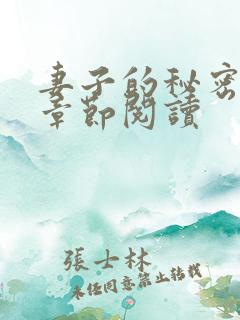 妻子的秘密
章節閱讀
張士林
未經同意禁止轉載